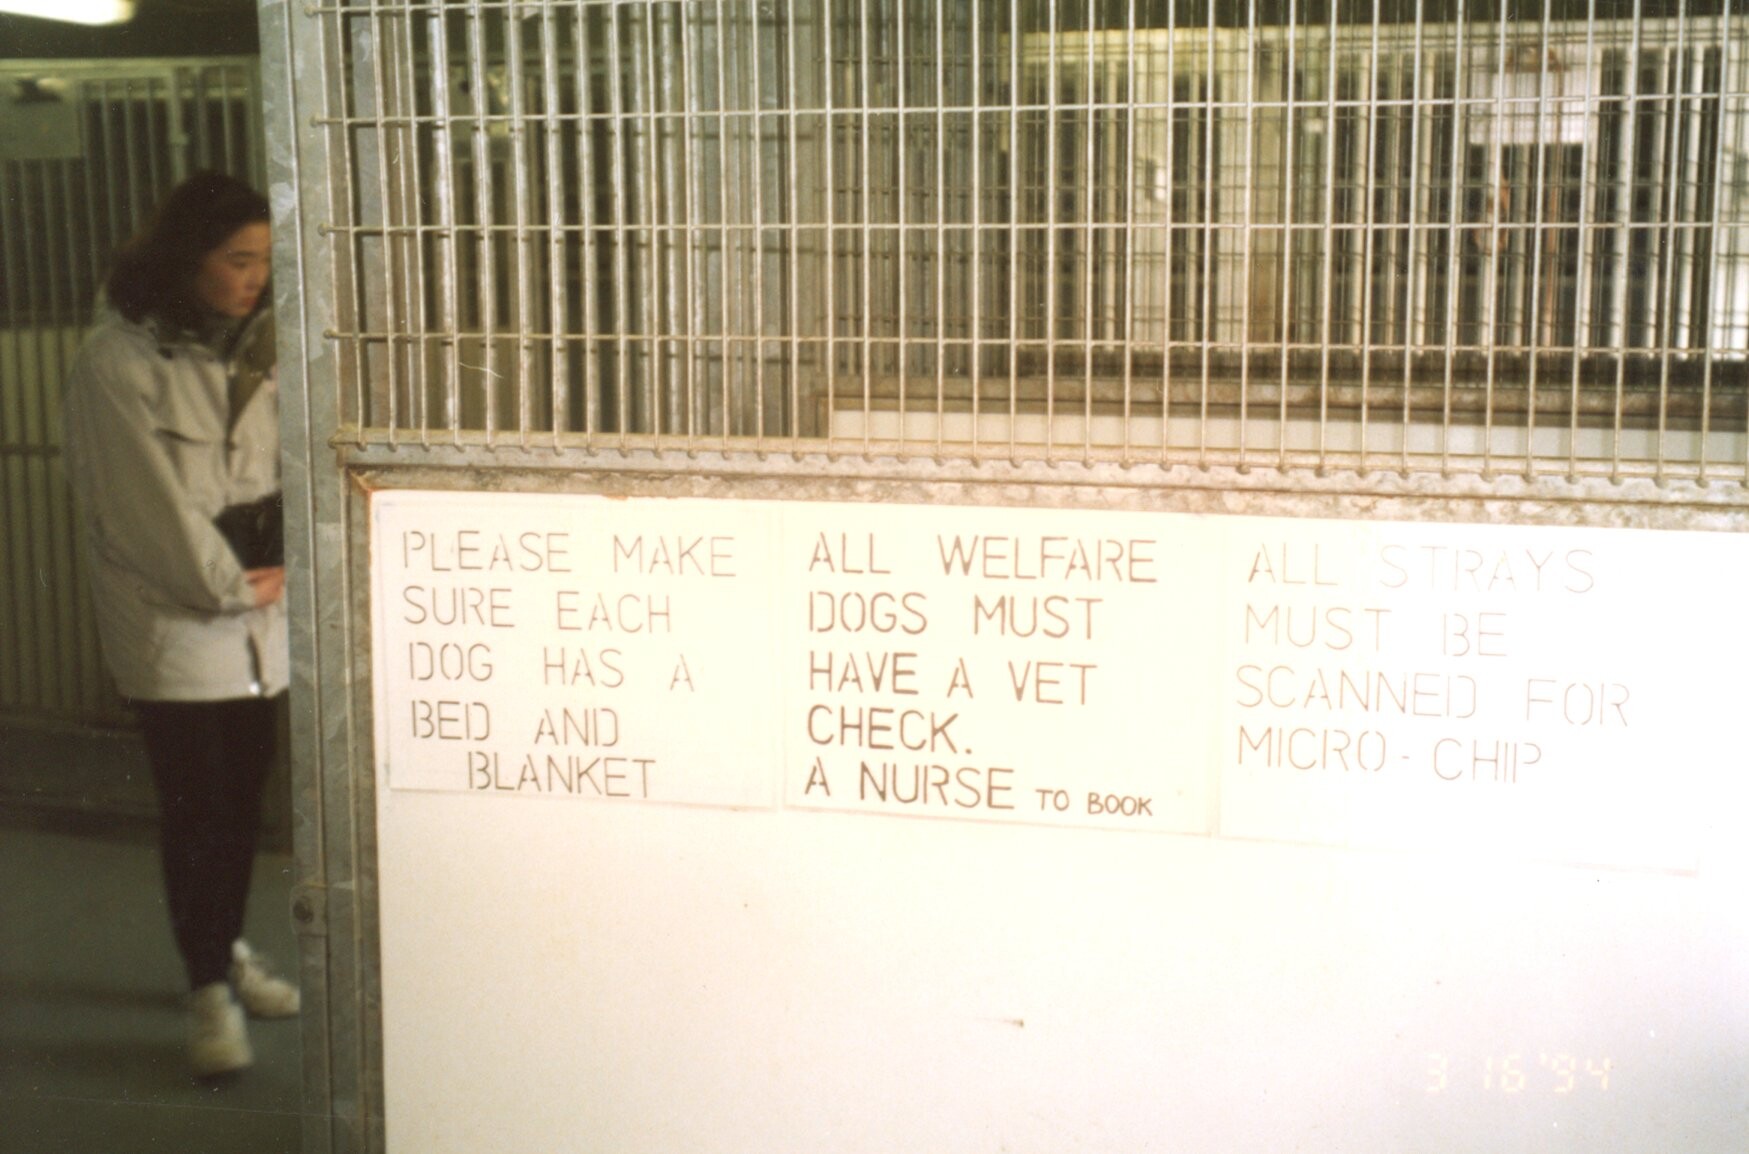 PLEASE MAKE
SURE EACH
DOG HAS A
BED AND
BLANKET
ALL WELFARE
DOGS MUST
HAVE A VET
CHECK.
A NURSE TO BOOK
ALL STRAYS
MUST BE
SCANNED FOR
MICRO-CHIP
3 16 '94